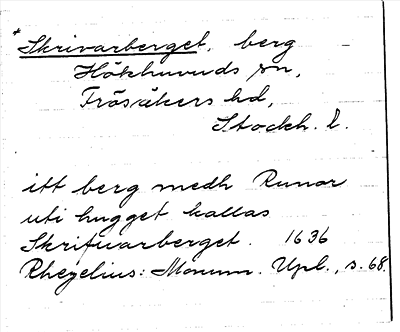 *Skrivarberget, berg
Hökhuvuds sn,
Frösåkers hd,
Stockh. l.
itt berg medh Runor
uti hugget kallas
Skrifuarberget. 1636
Rhezelius: Monum. Upl., s. 68.